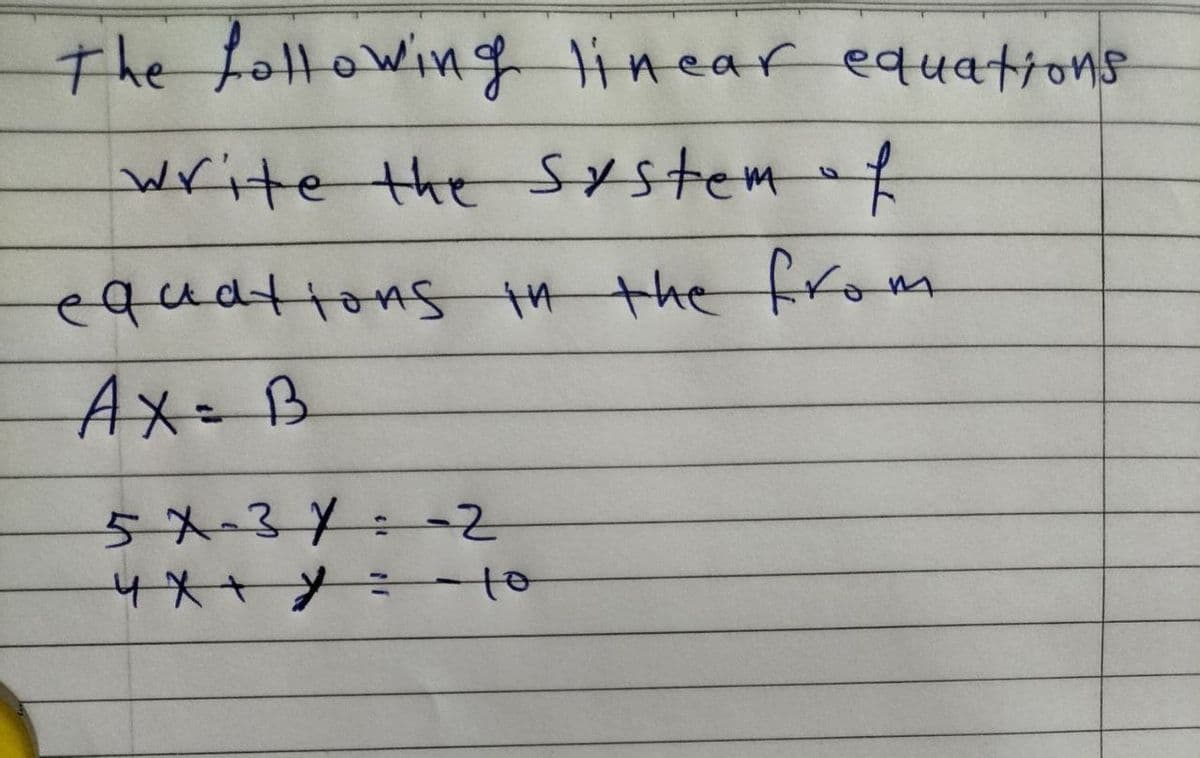 The following linear equations
write the system of
equations in the from
AX = B
5X-3Y = -2
4X + Y = -10